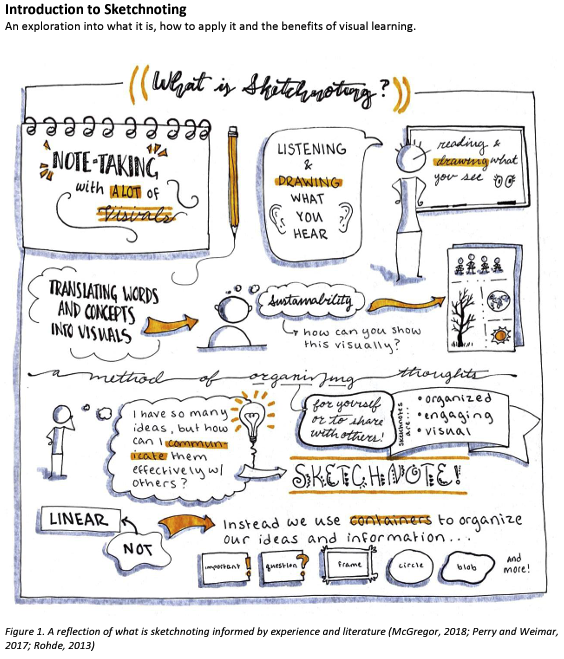 Introduction to Sketchnoting
An exploration into what it is, how to apply it and the benefits of visual learning.
What is Sketchnoting?
NOTE-TAKING
with A LOT of
Visuals
LISTENING
&
DRAWING
WHAT
YOU
HEAR
reading &
drawing what
you see
TRANSLATING WORDS
AND CONCEPTS
INTO VISUALS
Sustainability
how can you show
this visually?
a method of organizing thoughts
I have so many
ideas, but how
can I commun-
icate them
effectively w/
others?
for yourself
or to share
with others!
sketchnotes
are...
• organized
• engaging
• visual
SKETCHNOTE!
LINEAR
NOT
Instead we use containers to organize
our ideas and information...
important!
question?
frame
circle
blob
and
more!
Figure 1. A reflection of what is sketchnoting informed by experience and literature (McGregor, 2018; Perry and Weimar,
2017; Rohde, 2013)